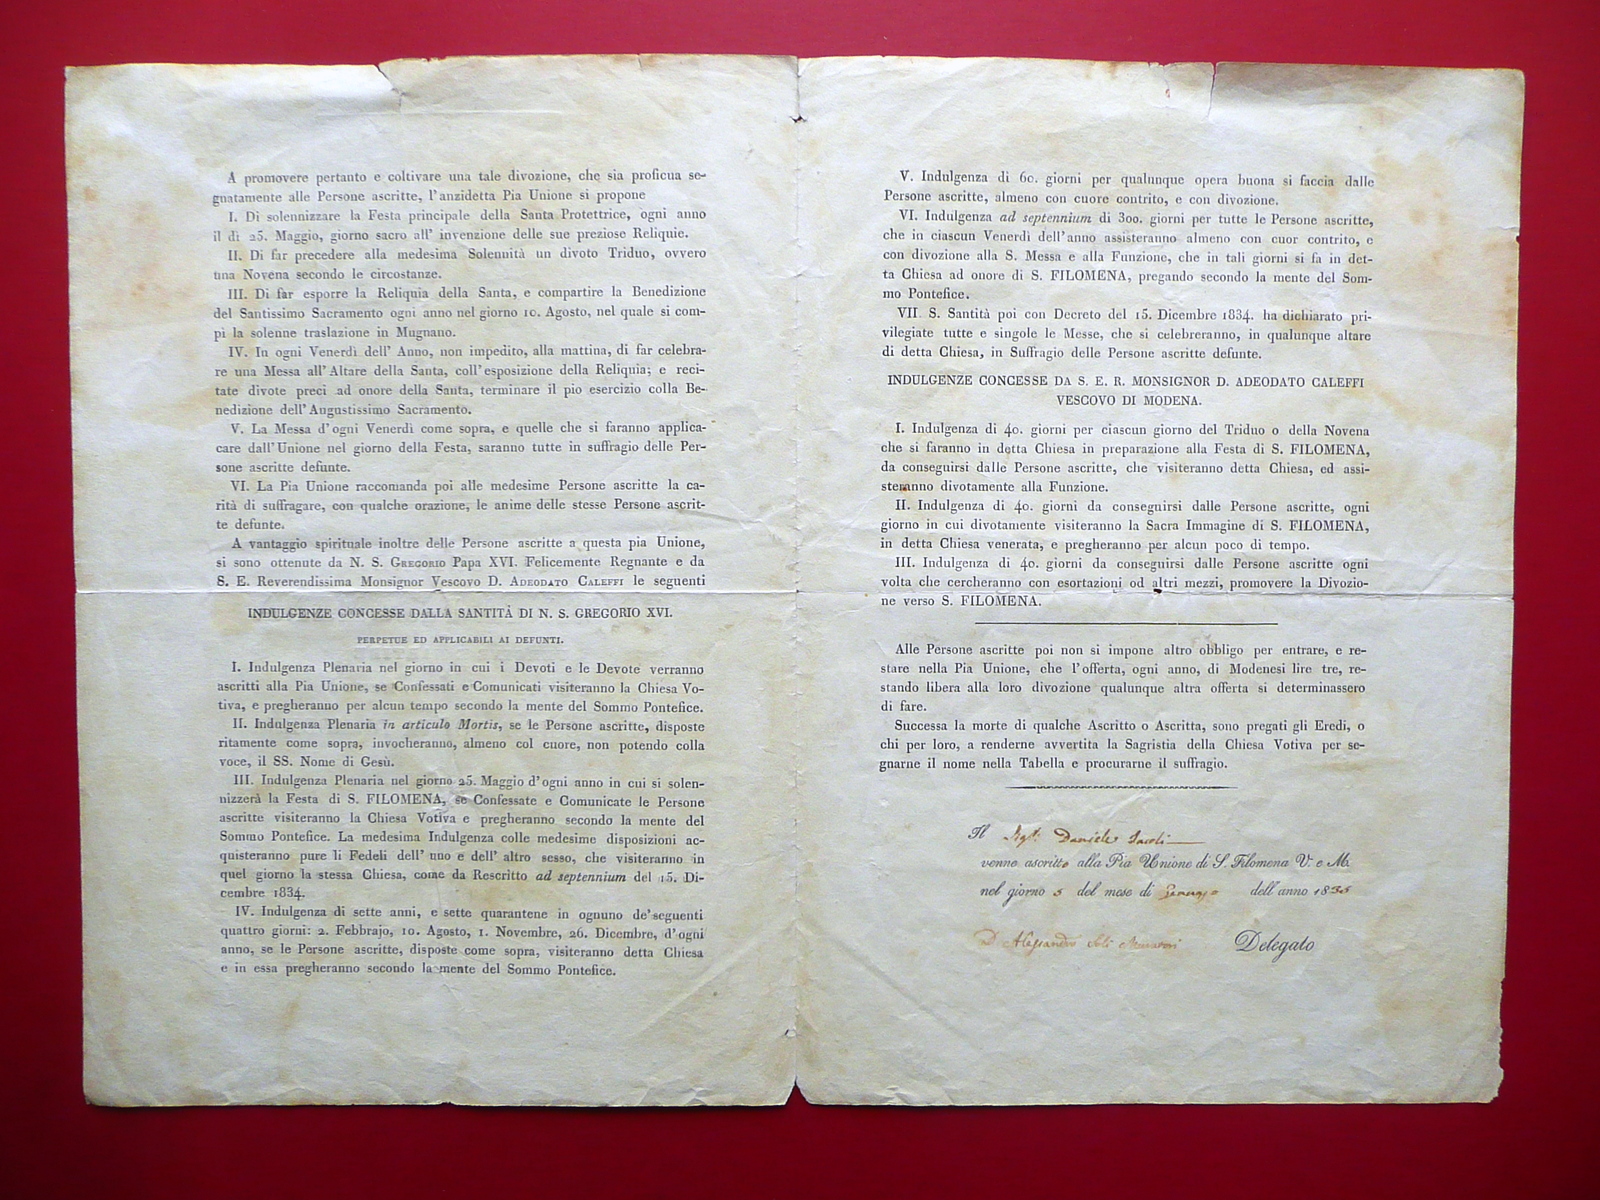 A promovere pertanto e coltivare una tale divozione, che sia proficua se-
gnatamente alle Persone ascritte, l'anzidetta Pia Unione si propone
I. Di solennizzare la Festa principale della Santa Protettrice, ogni anno
il dì 25. Maggio, giorno sacro all' invenzione delle sue preziose Reliquie.
II. Di far precedere alla medesima Solennità un divoto Triduo, ovvero
una Novena secondo le circostanze.
III. Di far esporre la Reliquia della Santa, e compartire la Benedizione
del Santissimo Sacramento ogni anno nel giorno 10. Agosto, nel quale si com-
pì la solenne traslazione in Mugnano.
IV. In ogni Venerdì dell' Anno, non impedito, alla mattina, di far celebra-
re una Messa all'Altare della Santa, coll'esposizione della Reliquia; e reci-
tate divote preci ad onore della Santa, terminare il pio esercizio colla Be-
nedizione dell'Augustissimo Sacramento.
V. La Messa d'ogni Venerdì come sopra, e quelle che si faranno applica-
care dall'Unione nel giorno della Festa, saranno tutte in suffragio delle Per-
sone ascritte defunte.
VI. La Pia Unione raccomanda poi alle medesime Persone ascritte la ca-
rità di suffragare, con qualche orazione, le anime delle stesse Persone ascrit-
te defunte.
A vantaggio spirituale inoltre delle Persone ascritte a questa pia Unione,
si sono ottenute da N. S. GREGORIO Papa XVI. Felicemente Regnante e da
S. E. Reverendissima Monsignor Vescovo D. ADEODATO CALEFFI le seguenti
INDULGENZE CONCESSE DALLA SANTITÀ DI N. S. GREGORIO XVI.
PERPETUE ED APPLICABILI AI DEFUNTI.
I. Indulgenza Plenaria nel giorno in cui i Devoti e le Devote verranno
ascritti alla Pia Unione, se Confessati e Comunicati visiteranno la Chiesa Vo-
tiva, e pregheranno per alcun tempo secondo la mente del Sommo Pontefice.
II. Indulgenza Plenaria in articulo Mortis, se le Persone ascritte, disposte
ritamente come sopra, invocheranno, almeno col cuore, non potendo colla
voce, il SS. Nome di Gesù.
III. Indulgenza Plenaria nel giorno 25. Maggio d'ogni anno in cui si solen-
nizzerà la Festa di S. FILOMENA, se Confessate e Comunicate le Persone
ascritte visiteranno la Chiesa Votiva e pregheranno secondo la mente del
Sommo Pontefice. La medesima Indulgenza colle medesime disposizioni ac-
quisteranno pure li Fedeli dell' uno e dell' altro sesso, che visiteranno in
quel giorno la stessa Chiesa, come da Rescritto ad septennium del 15. Di-
cembre 1834.
IV. Indulgenza di sette anni, e sette quarantene in ognuno de'seguenti
quattro giorni: 2. Febbrajo, 10. Agosto, 1. Novembre, 26. Dicembre, d'ogni
anno, se le Persone ascritte, disposte come sopra, visiteranno detta Chiesa
e in essa pregheranno secondo la mente del Sommo Pontefice.
V. Indulgenza di 60. giorni per qualunque opera buona si faccia dalle
Persone ascritte, almeno con cuore contrito, e con divozione.
VI. Indulgenza ad septennium di 300. giorni per tutte le Persone ascritte,
che in ciascun Venerdì dell'anno assisteranno almeno con cuor contrito, e
con divozione alla S. Messa e alla Funzione, che in tali giorni si fa in det-
ta Chiesa ad onore di S. FILOMENA, pregando secondo la mente del Som-
mo Pontefice.
VII. S. Santità poi con Decreto del 15. Dicembre 1834. ha dichiarato pri-
vilegiate tutte e singole le Messe, che si celebreranno, in qualunque altare
di detta Chiesa, in Suffragio delle Persone ascritte defunte.
INDULGENZE CONCESSE DA S. E. R. MONSIGNOR D. ADEODATO CALEFFI
VESCOVO DI MODENA.
I. Indulgenza di 40. giorni per ciascun giorno del Triduo o della Novena
che si faranno in detta Chiesa in preparazione alla Festa di S. FILOMENA,
da conseguirsi dalle Persone ascritte, che visiteranno detta Chiesa, ed assi-
steranno divotamente alla Funzione.
II. Indulgenza di 40. giorni da conseguirsi dalle Persone ascritte, ogni
giorno in cui divotamente visiteranno la Sacra Immagine di S. FILOMENA,
in detta Chiesa venerata, e pregheranno per alcun poco di tempo.
III. Indulgenza di 40. giorni da conseguirsi dalle Persone ascritte ogni
volta che cercheranno con esortazioni od altri mezzi, promovere la Divozio-
ne verso S. FILOMENA.
Alle Persone ascritte poi non si impone altro obbligo per entrare, e re-
stare nella Pia Unione, che l'offerta, ogni anno, di Modenesi lire tre, re-
stando libera alla loro divozione qualunque altra offerta si determinassero
di fare.
Successa la morte di qualche Ascritto o Ascritta, sono pregati gli Eredi, o
chi per loro, a renderne avvertita la Sagristia della Chiesa Votiva per se-
gnarne il nome nella Tabella e procurarne il suffragio.
Il Daniele
venne ascritto alla Pia Unione di S. Filomena V. e M.
nel giorno 5 del mese di dell'anno 1836
D. Alessandro Soli Muratori Delegato